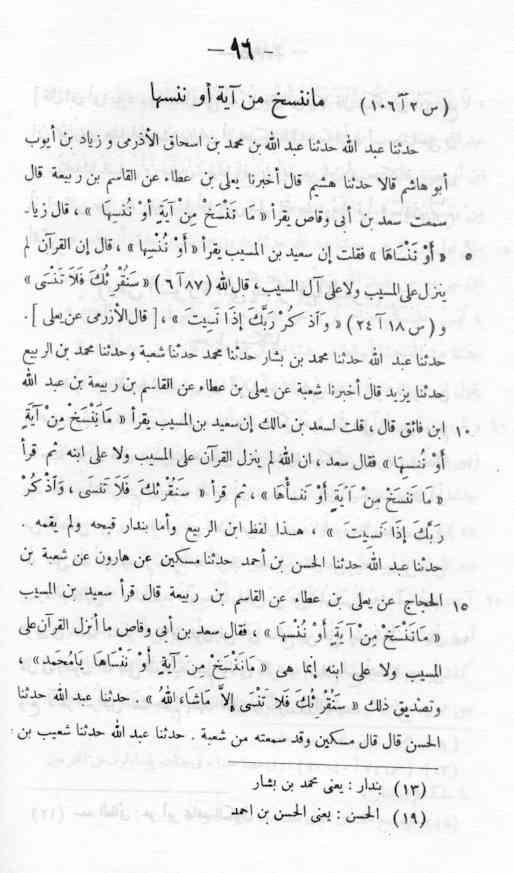 — ٩٦ —
(س ٢ آ ١٠٦) ماننسخ من آية أو ننسها
حدثنا عبد الله حدثنا عبد الله بن محمد بن اسحاق الأذرمى و زياد بن أيوب
أبو هاشم قالا حدثنا هشيم قال أخبرنا يعلى بن عطاء عن القاسم بن ربيعة قال
سمعت سعد بن أبى وقاص يقرأ « مَا نَنْسَخْ مِنْ آيَةٍ أوْ نُنْسِهَا » ، قال زيا-
٥ « أوْ نَنْسَاهَا » فقلت إن سعيد بن المسيب يقرأ « أوْ نُنْسِهَا » ، قال إن القرآن لم
ينزل على المسيب ولا على آل المسيب ، قال الله (٨٧ آ ٦) « سَنُقْرِئُكَ فَلَا تَنْسَى »
و (س ١٨ آ ٢٤) « وَآذْ كُرْ رَبَّكَ إذَا نَسِيتَ » ، [ قال الأزرمى عن يعلى ] .
حدثنا عبد الله حدثنا محمد بن بشار حدثنا محمد حدثنا شعبة وحدثنا محمد بن الربيع
حدثنا يزيد قال أخبرنا شعبة عن يعلى بن عطاء عن القاسم بن ربيعة بن عبد الله
١٠ ابن قائق قال ، قلت لسعد بن مالك إن سعيد بن المسيب يقرأ « مَانَنْسَخْ مِنْ آيَةٍ
أوْ نُنْسِهَا » فقال سعد ، ان الله لم ينزل القرآن على المسيب ولا على ابنه ثم قرأ
« مَا نَنْسَخْ مِنْ آيَةٍ أوْ نَنْسأْهَا » ، ثم قرأ « سَنُقْرِئُكَ فَلَا تَنْسَى ، وَآذْ كُرْ
رَبَّكَ إذَا نَسِيتَ » ، هذا لفظ ابن الربيع وأما بندار قبحه ولم يقمه .
حدثنا عبد الله حدثنا الحسن بن أحمد حدثنا مسكين عن هارون عن شعبة بن
١٥ الحجاج عن يعلى بن عطاء عن القاسم بن ربيعة قال قرأ سعيد بن المسيب
« مَانَنْسَخْ مِنْ آيَةٍ أوْ نُنْسِهَا » ، فقال سعد بن أبى وقاص ما أنزل القرآن على
المسيب ولا على ابنه إنما هى « مَانَنْسَخْ مِنَ آيَةٍ أوْ نَنْسَاهَا يَامُحَمد» ،
وتصديق ذلك « سَنُقْرِئُكَ فَلَا تَنْسَى إلاَّ مَاشَاءَ اللهُ » . حدثنا عبد الله حدثنا
الحسن قال قال مسكين وقد سمعته من شعبة . حدثنا عبد الله حدثنا شعيب بن
(١٣) بندار : يعنى محمد بن بشار
(١٩) الحسن : يعنى الحسن بن احمد